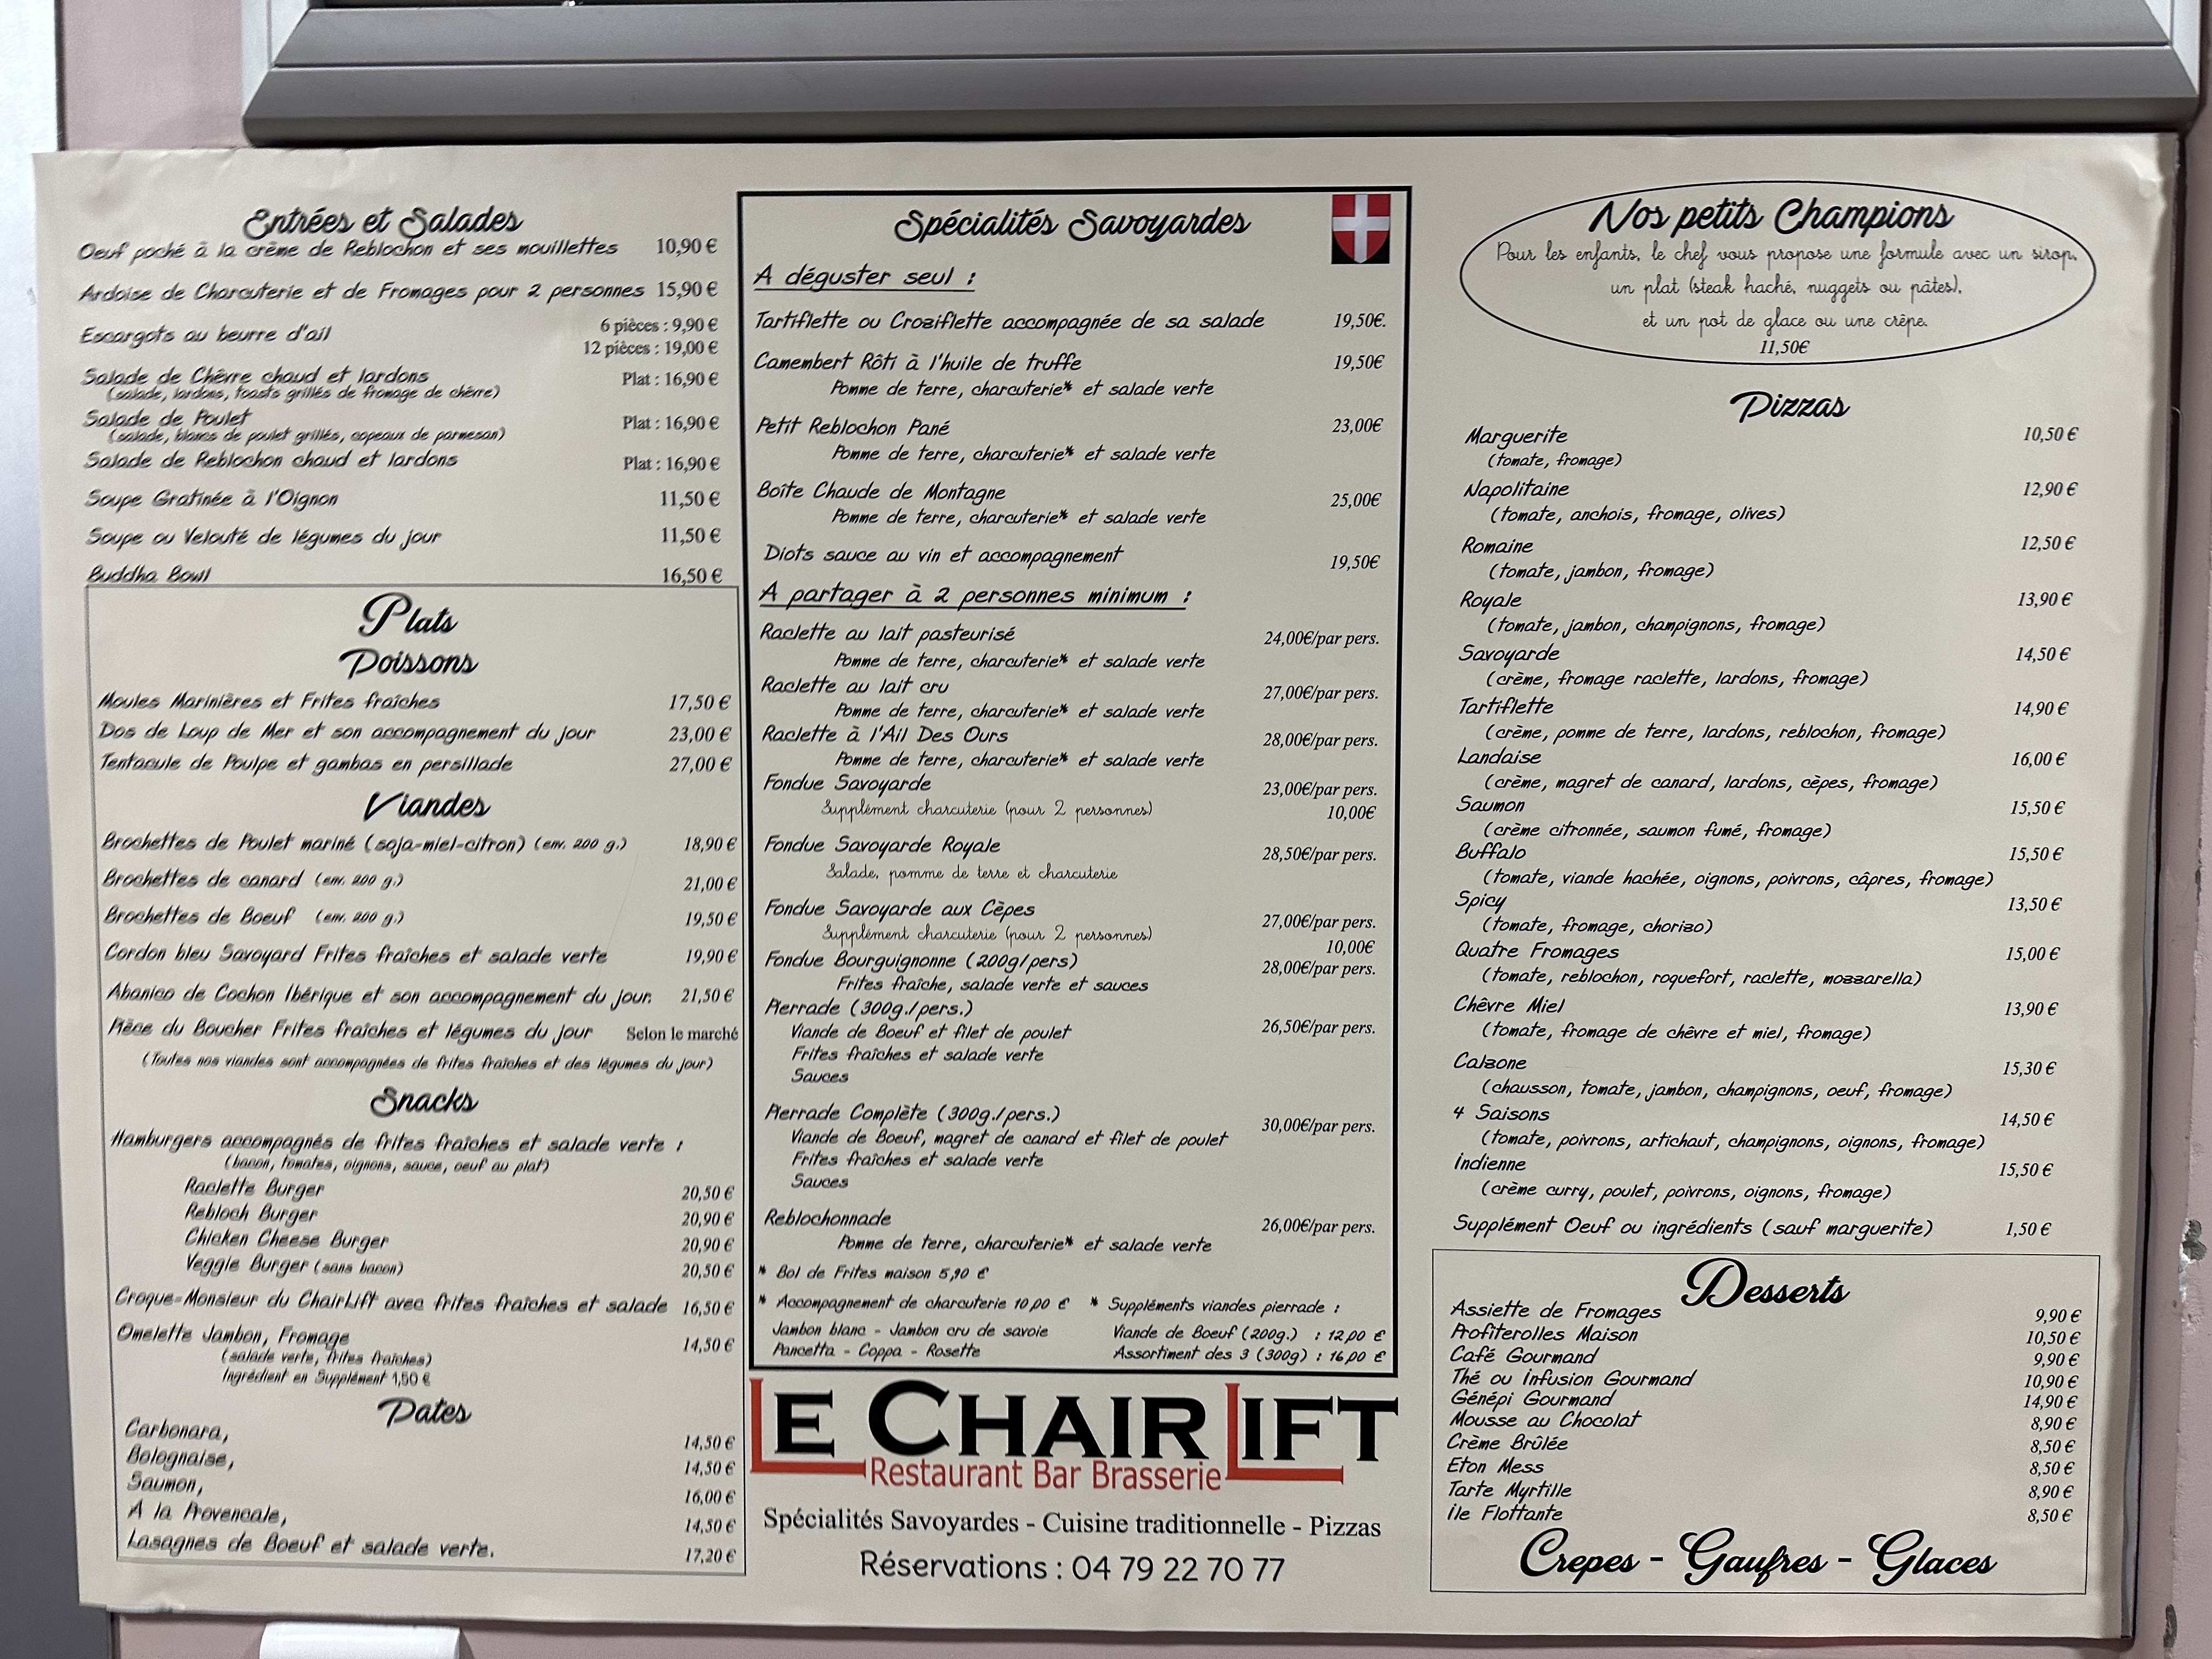 Entrées et Salades
Oeuf poché à la crème de Reblochon et ses mouillettes 10,90 €
Ardoise de Charcuterie et de Fromages pour 2 personnes 15,90 €
Escargots au beurre d'ail 6 pièces : 9,90 €
12 pièces : 19,00 €
Salade de Chèvre chaud et lardons Plat : 16,90 €
(salade, lardons, toasts grillés de fromage de chèvre)
Salade de Poulet Plat : 16,90 €
(salade, blancs de poulet grillés, copeaux de parmesan)
Salade de Reblochon chaud et lardons Plat : 16,90 €
Soupe Gratinée à l'Oignon 11,50 €
Soupe ou Velouté de légumes du jour 11,50 €
Buddha Bowl 16,50 €
Plats
Poissons
Moules Marinières et Frites fraîches 17,50 €
Dos de Loup de Mer et son accompagnement du jour 23,00 €
Tentacule de Poulpe et gambas en persillade 27,00 €
Viandes
Brochettes de Poulet mariné (soja-miel-citron) (env. 200 g.) 18,90 €
Brochettes de canard (env. 200 g.) 21,00 €
Brochettes de Boeuf (env. 200 g.) 19,50 €
Cordon bleu Savoyard Frites fraîches et salade verte 19,90 €
Abanico de Cochon Ibérique et son accompagnement du jour. 21,50 €
Pièce du Boucher Frites fraîches et légumes du jour Selon le marché
(Toutes nos viandes sont accompagnées de frites fraîches et des légumes du jour)
Snacks
Hamburgers accompagnés de frites fraîches et salade verte :
(bacon, tomates, oignons, sauce, oeuf au plat)
Raclette Burger 20,50 €
Rebloch Burger 20,90 €
Chicken Cheese Burger 20,90 €
Veggie Burger (sans bacon) 20,50 €
Croque-Monsieur du ChairLift avec frites fraîches et salade 16,50 €
Omelette Jambon, Fromage 14,50 €
(salade verte, frites fraîches)
Ingrédient en Supplément 1,50 €
Pates
Carbonara, 14,50 €
Bolognaise, 14,50 €
Saumon, 16,00 €
A la Provencale, 14,50 €
Lasagnes de Boeuf et salade verte. 17,20 €
Spécialités Savoyardes
A déguster seul :
Tartiflette ou Croziflette accompagnée de sa salade 19,50€.
Camembert Rôti à l'huile de truffe 19,50€
Pomme de terre, charcuterie* et salade verte
Petit Reblochon Pané 23,00€
Pomme de terre, charcuterie* et salade verte
Boîte Chaude de Montagne 25,00€
Pomme de terre, charcuterie* et salade verte
Diots sauce au vin et accompagnement 19,50€
A partager à 2 personnes minimum :
Raclette au lait pasteurisé 24,00€/par pers.
Pomme de terre, charcuterie* et salade verte
Raclette au lait cru 27,00€/par pers.
Pomme de terre, charcuterie* et salade verte
Raclette à l'Ail Des Ours 28,00€/par pers.
Pomme de terre, charcuterie* et salade verte
Fondue Savoyarde 23,00€/par pers.
Supplément charcuterie (pour 2 personnes) 10,00€
Fondue Savoyarde Royale 28,50€/par pers.
Salade, pomme de terre et charcuterie
Fondue Savoyarde aux Cèpes 27,00€/par pers.
Supplément charcuterie (pour 2 personnes) 10,00€
Fondue Bourguignonne (200g/pers) 28,00€/par pers.
Frites fraîche, salade verte et sauces
Pierrade (300g./pers.)
Viande de Boeuf et filet de poulet 26,50€/par pers.
Frites fraîches et salade verte
Sauces
Pierrade Complète (300g./pers.) 30,00€/par pers.
Viande de Boeuf, magret de canard et filet de poulet
Frites fraîches et salade verte
Sauces
Reblochonnade 26,00€/par pers.
Pomme de terre, charcuterie* et salade verte
* Bol de Frites maison 5,90 €
* Accompagnement de charcuterie 10,00 € * Suppléments viandes pierrade :
Jambon blanc - Jambon cru de savoie Viande de Boeuf (200g.) : 12,00 €
Pancetta - Coppa - Rosette Assortiment des 3 (300g) : 16,00 €
LE CHAIRLIFT
Restaurant Bar Brasserie
Spécialités Savoyardes - Cuisine traditionnelle - Pizzas
Réservations : 04 79 22 70 77
Nos petits Champions
Pour les enfants, le chef vous propose une formule avec un sirop,
un plat (steak haché, nuggets ou pâtes),
et un pot de glace ou une crêpe.
11,50€
Pizzas
Marguerite 10,50 €
(tomate, fromage)
Napolitaine 12,90 €
(tomate, anchois, fromage, olives)
Romaine 12,50 €
(tomate, jambon, fromage)
Royale 13,90 €
(tomate, jambon, champignons, fromage)
Savoyarde 14,50 €
(crème, fromage raclette, lardons, fromage)
Tartiflette 14,90 €
(crème, pomme de terre, lardons, reblochon, fromage)
Landaise 16,00 €
(crème, magret de canard, lardons, cèpes, fromage)
Saumon 15,50 €
(crème citronnée, saumon fumé, fromage)
Buffalo 15,50 €
(tomate, viande hachée, oignons, poivrons, câpres, fromage)
Spicy 13,50 €
(tomate, fromage, chorizo)
Quatre Fromages 15,00 €
(tomate, reblochon, roquefort, raclette, mozzarella)
Chêvre Miel 13,90 €
(tomate, fromage de chèvre et miel, fromage)
Calzone 15,30 €
(chausson, tomate, jambon, champignons, oeuf, fromage)
4 Saisons 14,50 €
(tomate, poivrons, artichaut, champignons, oignons, fromage)
Indienne 15,50 €
(crème curry, poulet, poivrons, oignons, fromage)
Supplément Oeuf ou ingrédients (sauf marguerite) 1,50 €
Desserts
Assiette de Fromages 9,90 €
Profiterolles Maison 10,50 €
Café Gourmand 9,90 €
Thé ou Infusion Gourmand 10,90 €
Génépi Gourmand 14,90 €
Mousse au Chocolat 8,90 €
Crème Brûlée 8,50 €
Eton Mess 8,50 €
Tarte Myrtille 8,90 €
ile Flottante 8,50 €
Crepes - Gaufres - Glaces